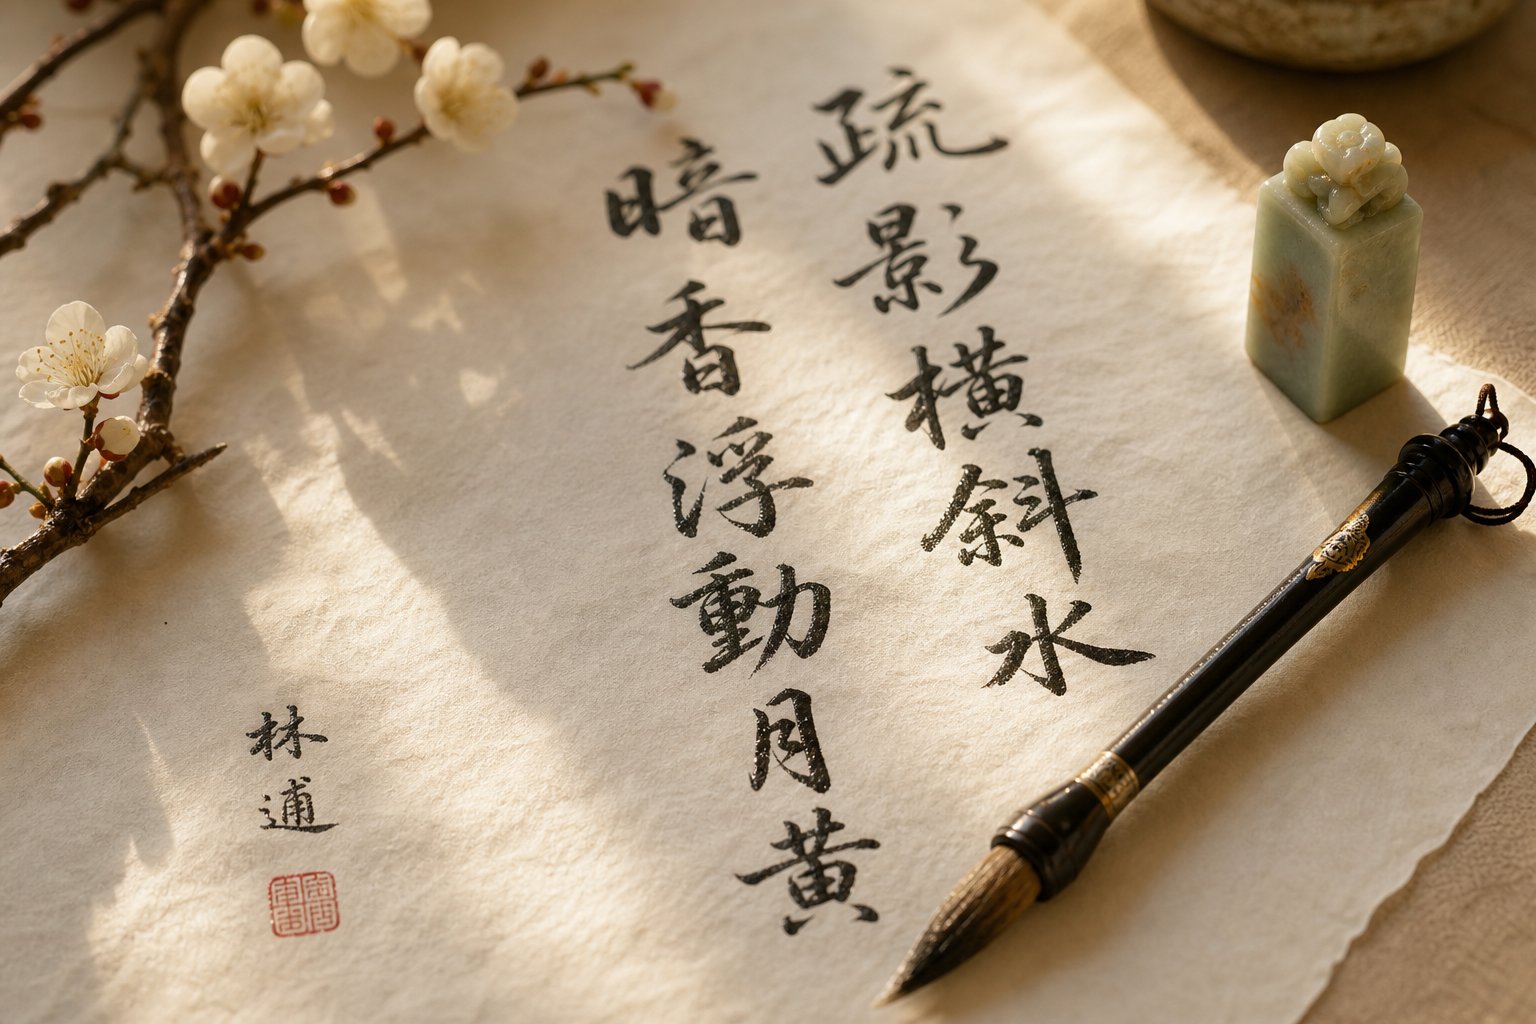 疏影橫斜水
暗香浮動月黃
林逋